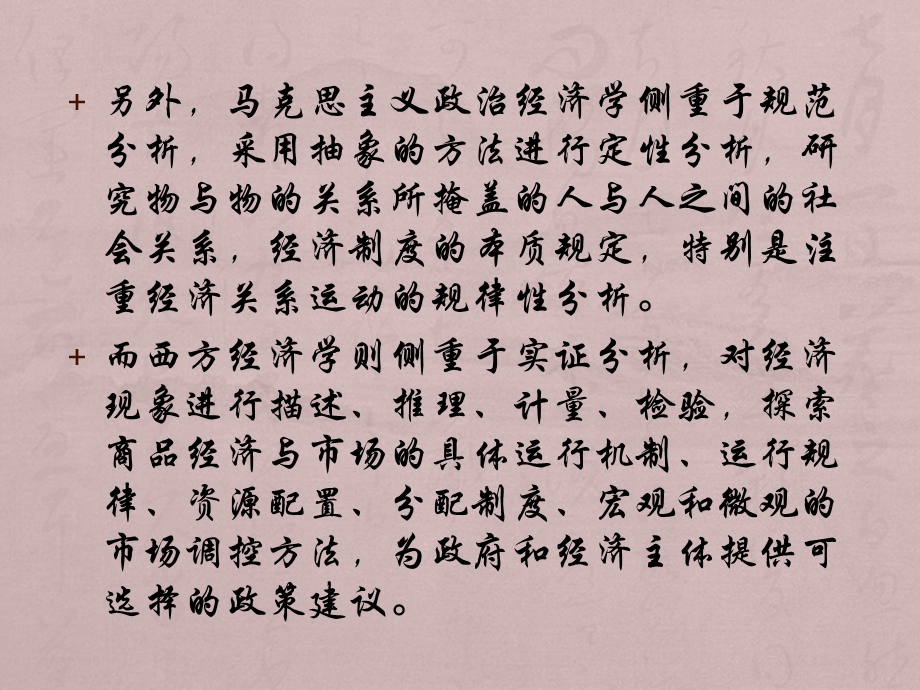 + 另外，马克思主义政治经济学侧重于规范
分析，采用抽象的方法进行定性分析，研
究物与物的关系所掩盖的人与人之间的社
会关系，经济制度的本质规定，特别是注
重经济关系运动的规律性分析。
+ 而西方经济学则侧重于实证分析，对经济
现象进行描述、推理、计量、检验，探索
商品经济与市场的具体运行机制、运行规
律、资源配置、分配制度、宏观和微观的
市场调控方法，为政府和经济主体提供可
选择的政策建议。